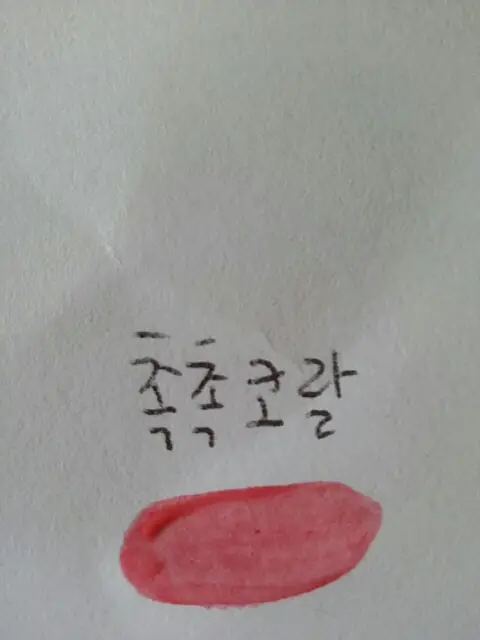 촉촉코랄